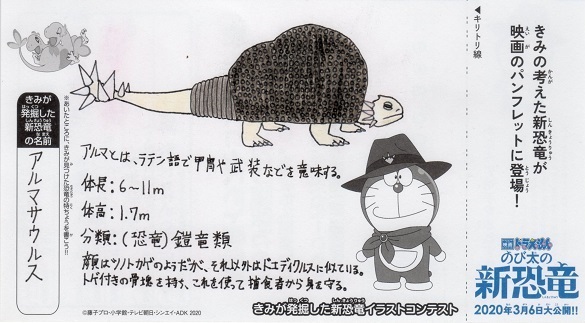 きみが
発掘した
新恐竜
の名前
アルマサウルス
※あいたところに、きみが見つけた恐竜の特ちょうを書こう!!
アルマとは、ラテン語で甲冑や武装などを意味する。
体長:6~11m
体高:1.7m
分類:(恐竜)鎧竜類
顔はツノトカゲのようだが、それ以外はドエディクルスに似ている。
トゲ付きの骨塊を持ち、これを使って捕食者から身を守る。
きみが発掘した新恐竜イラストコンテスト
©藤子プロ・小学館・テレビ朝日・シンエイ・ADK 2020
◀キリトリ線
きみの考えた新恐竜が
映画のパンフレットに登場!
映画ドラえもん
のび太の
新恐竜
2020年3月6日大公開!!